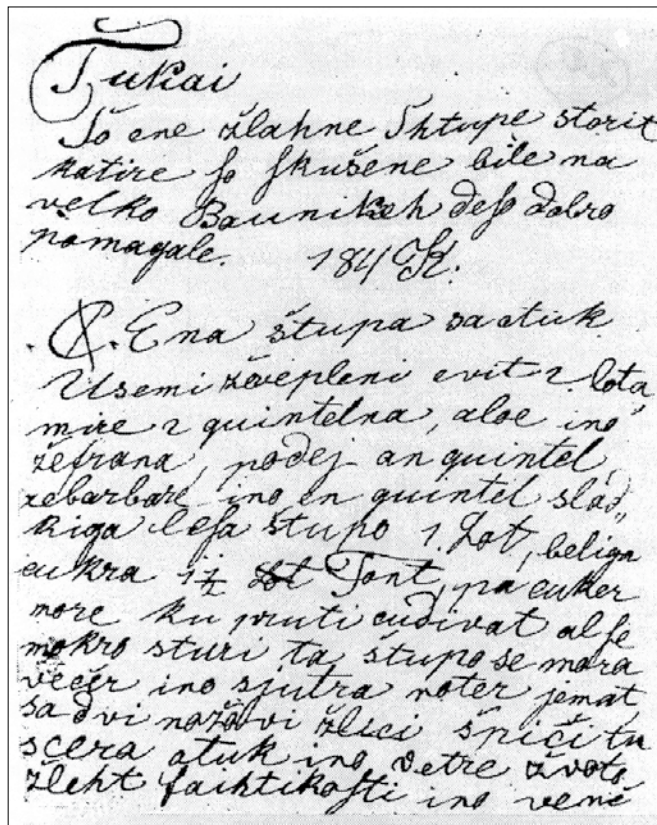 Tukai
So ene žlahne Shtupe storit
katire so skušene bile na
velko Baunikeh deso dobro
pomagale. 184
Ena štupa sa otuk
Usemi žvepleni cvit 2 lota,
mire 2 quintelna, aloe ino
žefrana, podej an quintel,
rebarbare ino en quintel slad„
kiga lesa štupo 1. Lot, beliga
cukra 1 1/2 Font, pa cuker
more ku pruti cudivat al se
mokro sturi ta štupo se mora
večer ino sjutra noter jemat,
sa dvi nožovi žlici špiči tu
scera otuk ino vetre života
žleht faihtikosti ino vene